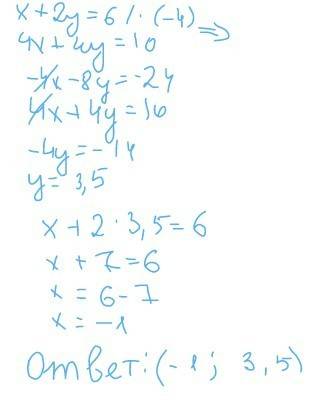 x + 2y = 6 /· (-4) =>
4x + 4y = 10
-4x - 8y = -24
4x + 4y = 10
-4y = -14
y = 3,5
x + 2 · 3,5 = 6
x + 7 = 6
x = 6 - 7
x = -1
Ответ: (-1; 3,5)